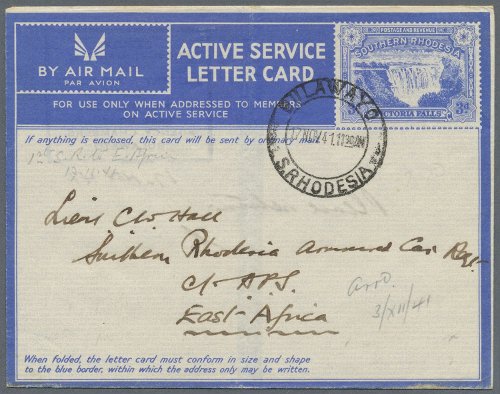 BY AIR MAIL
PAR AVION
ACTIVE SERVICE
LETTER CARD
FOR USE ONLY WHEN ADDRESSED TO MEMBERS
ON ACTIVE SERVICE
POSTAGE AND REVENUE
SOUTHERN RHODESIA
VICTORIA FALLS
3d
BULAWAYO
17 NOV 41. 11 30 AM
S. RHODESIA
If anything is enclosed, this card will be sent by ordinary mail.
Lieut C W Hall
Southern Rhodesia Armoured Car Regt
c/- APS.
East Africa
3/XII/41
When folded, the letter card must conform in size and shape
to the blue border, within which the address only may be written.